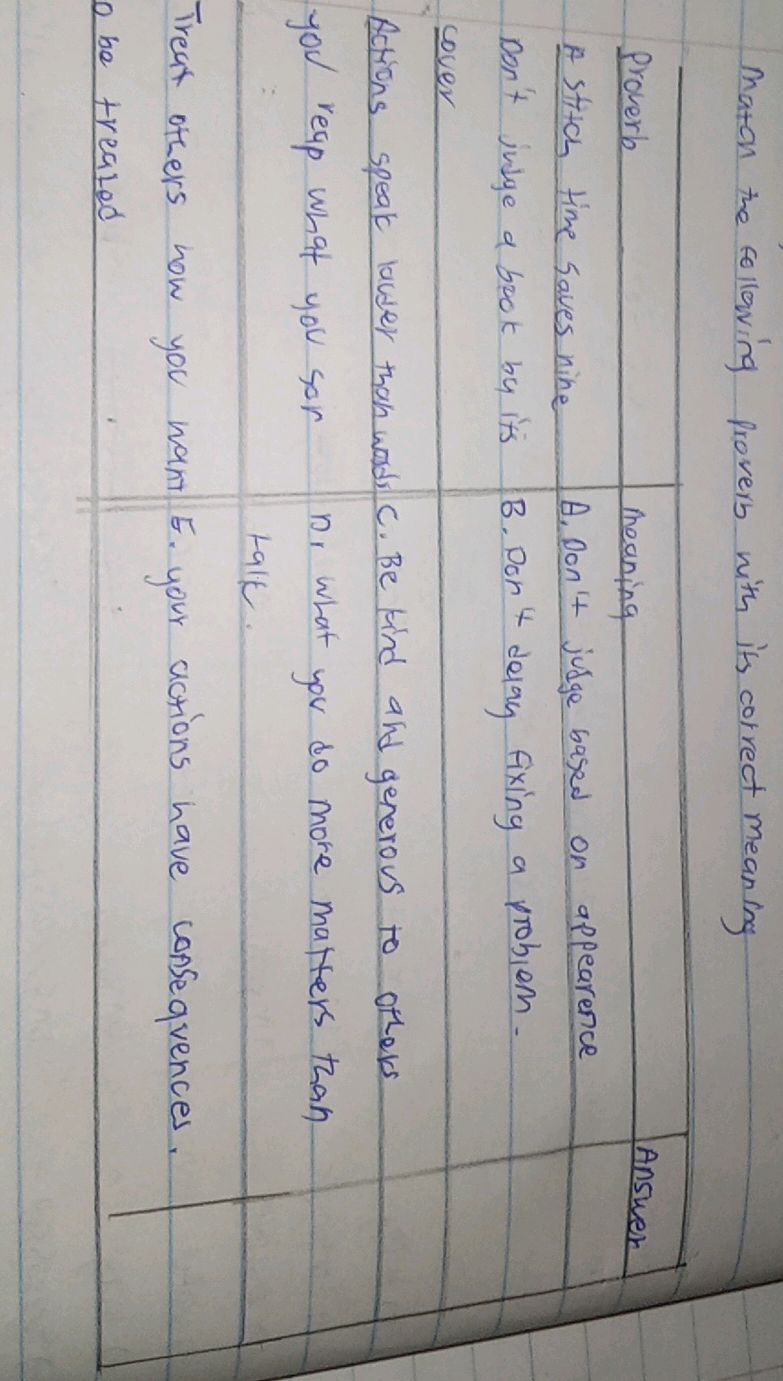 Match the following proverb with its correct meaning
Proverb Meaning Answer
A stitch time saves nine A. Don't judge based on appearence
Don't judge a book by its B. Don't delay fixing a problem.
cover
Actions speak louder than words C. Be kind and generous to others
you reap what you sar D. what you do more matters than
talk.
Treat others how you want E. your actions have consequences.
o be treated